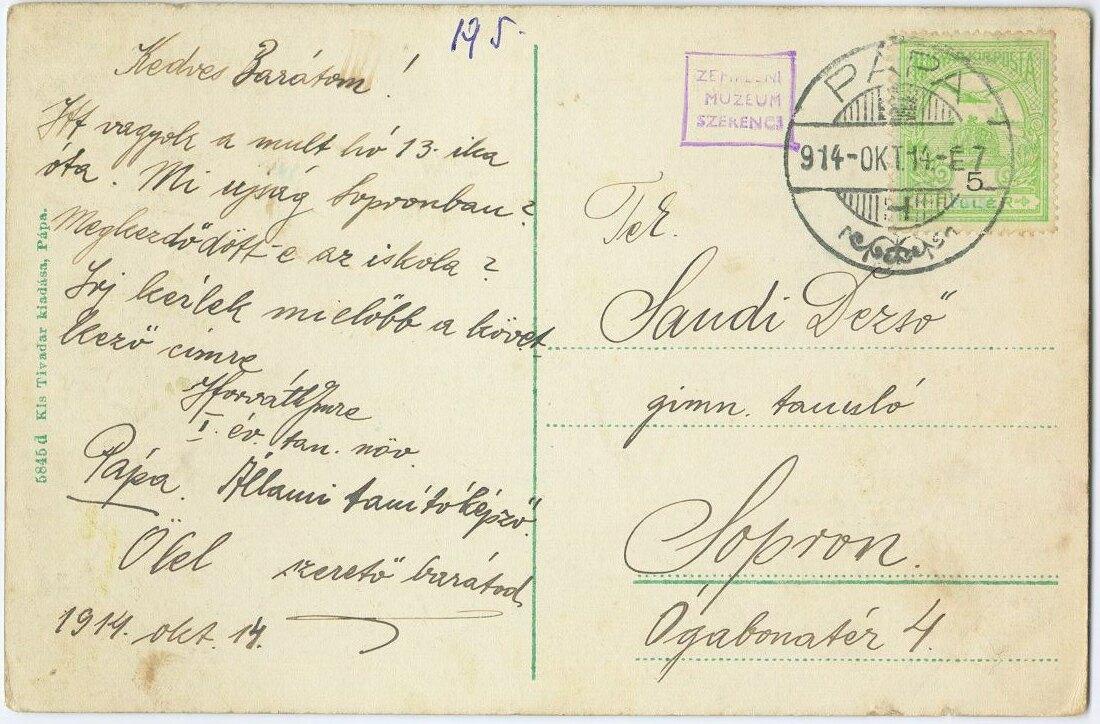 195.
Kedves Barátom!
Itt vagyok a mult hó 13-ika
óta. Mi ujság Sopronban?
Megkezdődött-e az iskola?
Irj kérlek mielőbb a követ
kező cimre
Horváth Imre
I. év. tan. növ.
Pápa. Állami tanitóképző.
Ölel szerető barátod
1914. okt. 14.
5845 d Kis Tivadar kiadása, Pápa.
ZEMPLÉNI
MUZEUM
SZERENCS
PÁPA
914-OKT.14.-E7
5
Tek.
Saudi Dezső
gimn. tanuló
Sopron.
Ógabonatér 4.